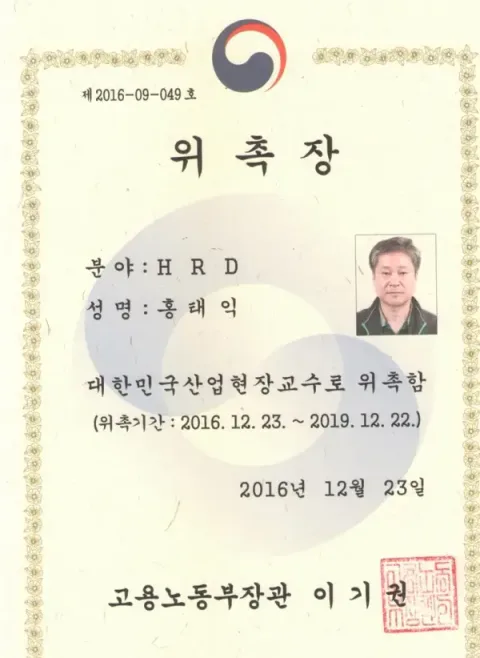 제 2016-09-049 호
위 촉 장
분 야 : H R D
성 명 : 홍 태 익
대한민국산업현장교수로 위촉함
(위촉기간 : 2016. 12. 23. ~ 2019. 12. 22.)
2016년 12월 23일
고용노동부장관 이 기 권